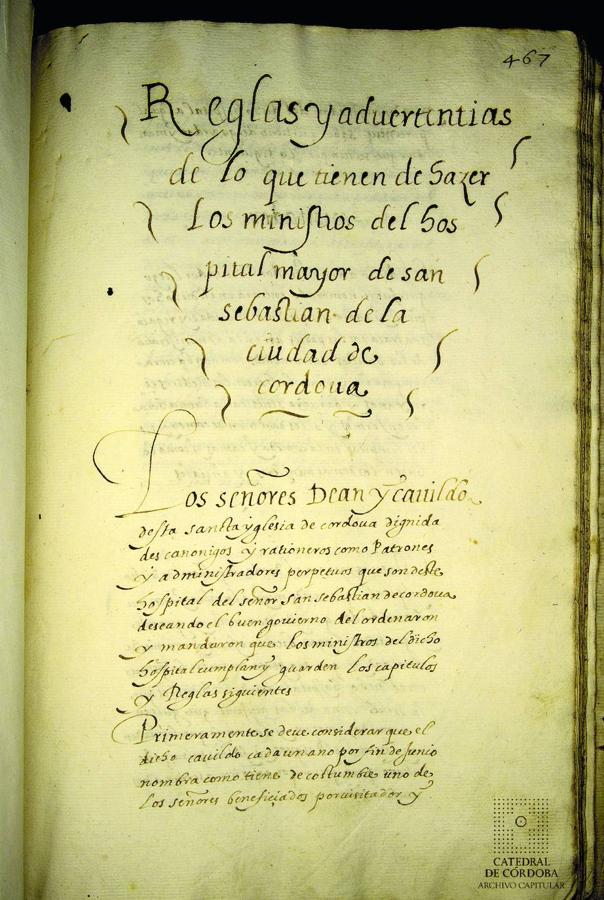 467
Reglas y advertentias
de lo que tienen de hazer
los ministros del hos
pital mayor de san
sebastian de la
ciudad de
cordova
Los señores Dean y cavildo
desta sancta yglesia de cordova dignida
des canonigos y rationeros como Patrones
y administradores perpetuos que son deste
hospital del señor san sebastian de cordova
deseando el buen govierno del ordenaron
y mandaron que los ministros del dicho
hospital cumplan y guarden los capitulos
y Reglas siguientes
Primeramente se deve considerar que el
dicho cavildo cada un ano por fin de junio
nombra como tiene de costumbre uno de
los señores beneficiados por visitador y
CATEDRAL
DE CÓRDOBA
ARCHIVO CAPITULAR